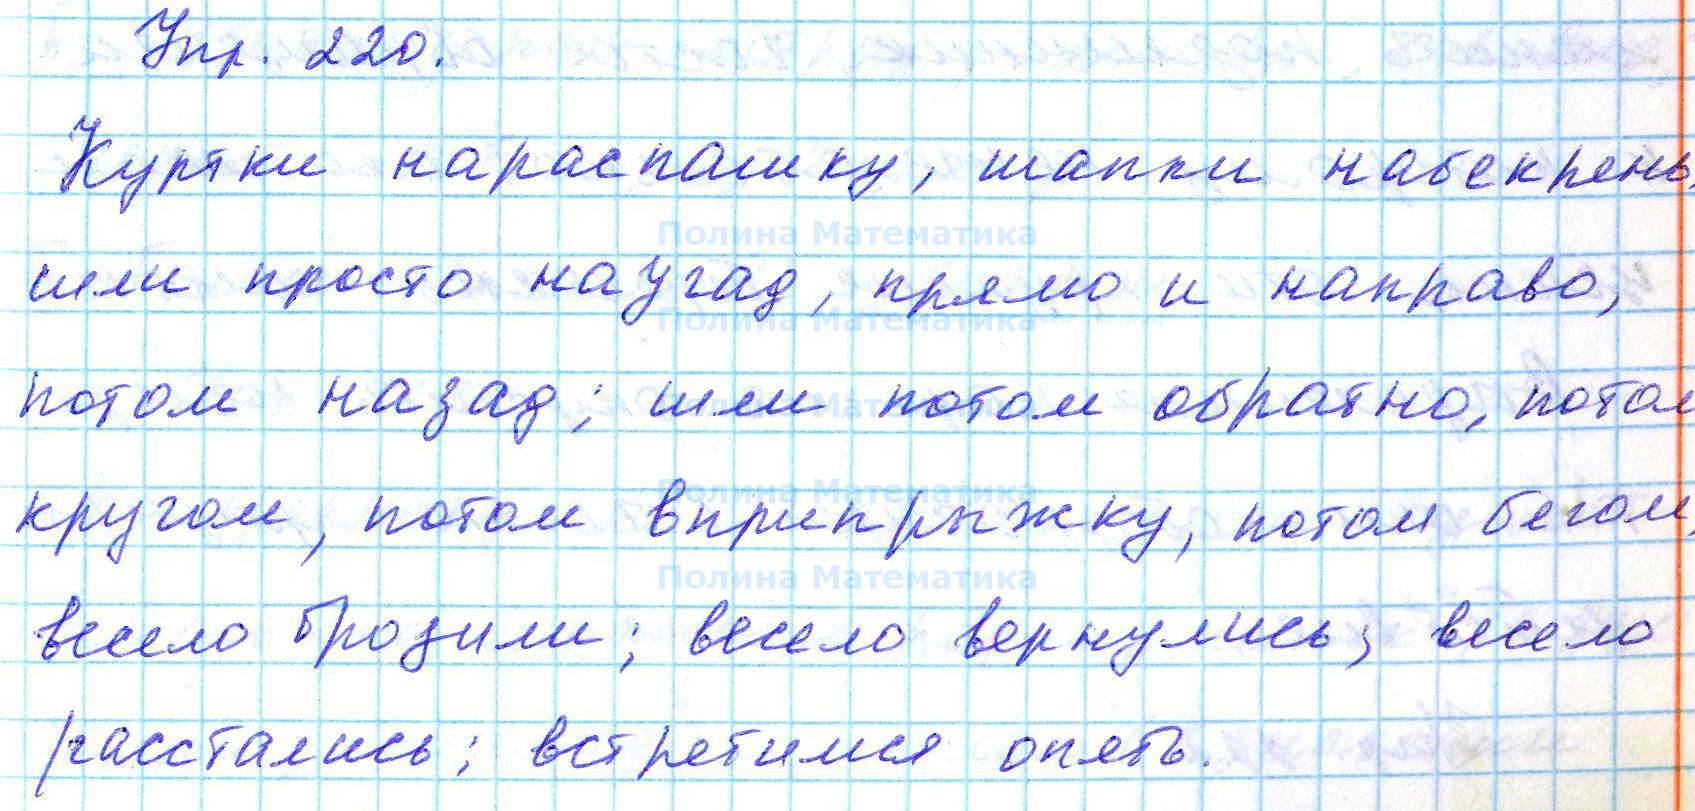 Упр. 220.
Куртки нараспашку, шапки набекрень,
Полина Математика
шли просто наугад, прямо и направо,
Полина Математика
потом назад; шли потом обратно, потом
Полина Математика
кругом, потом вприпрыжку, потом бегом,
Полина Математика
Полина Математика
весело бродили; весело вернулись; весело
расстались; встретимся опять.